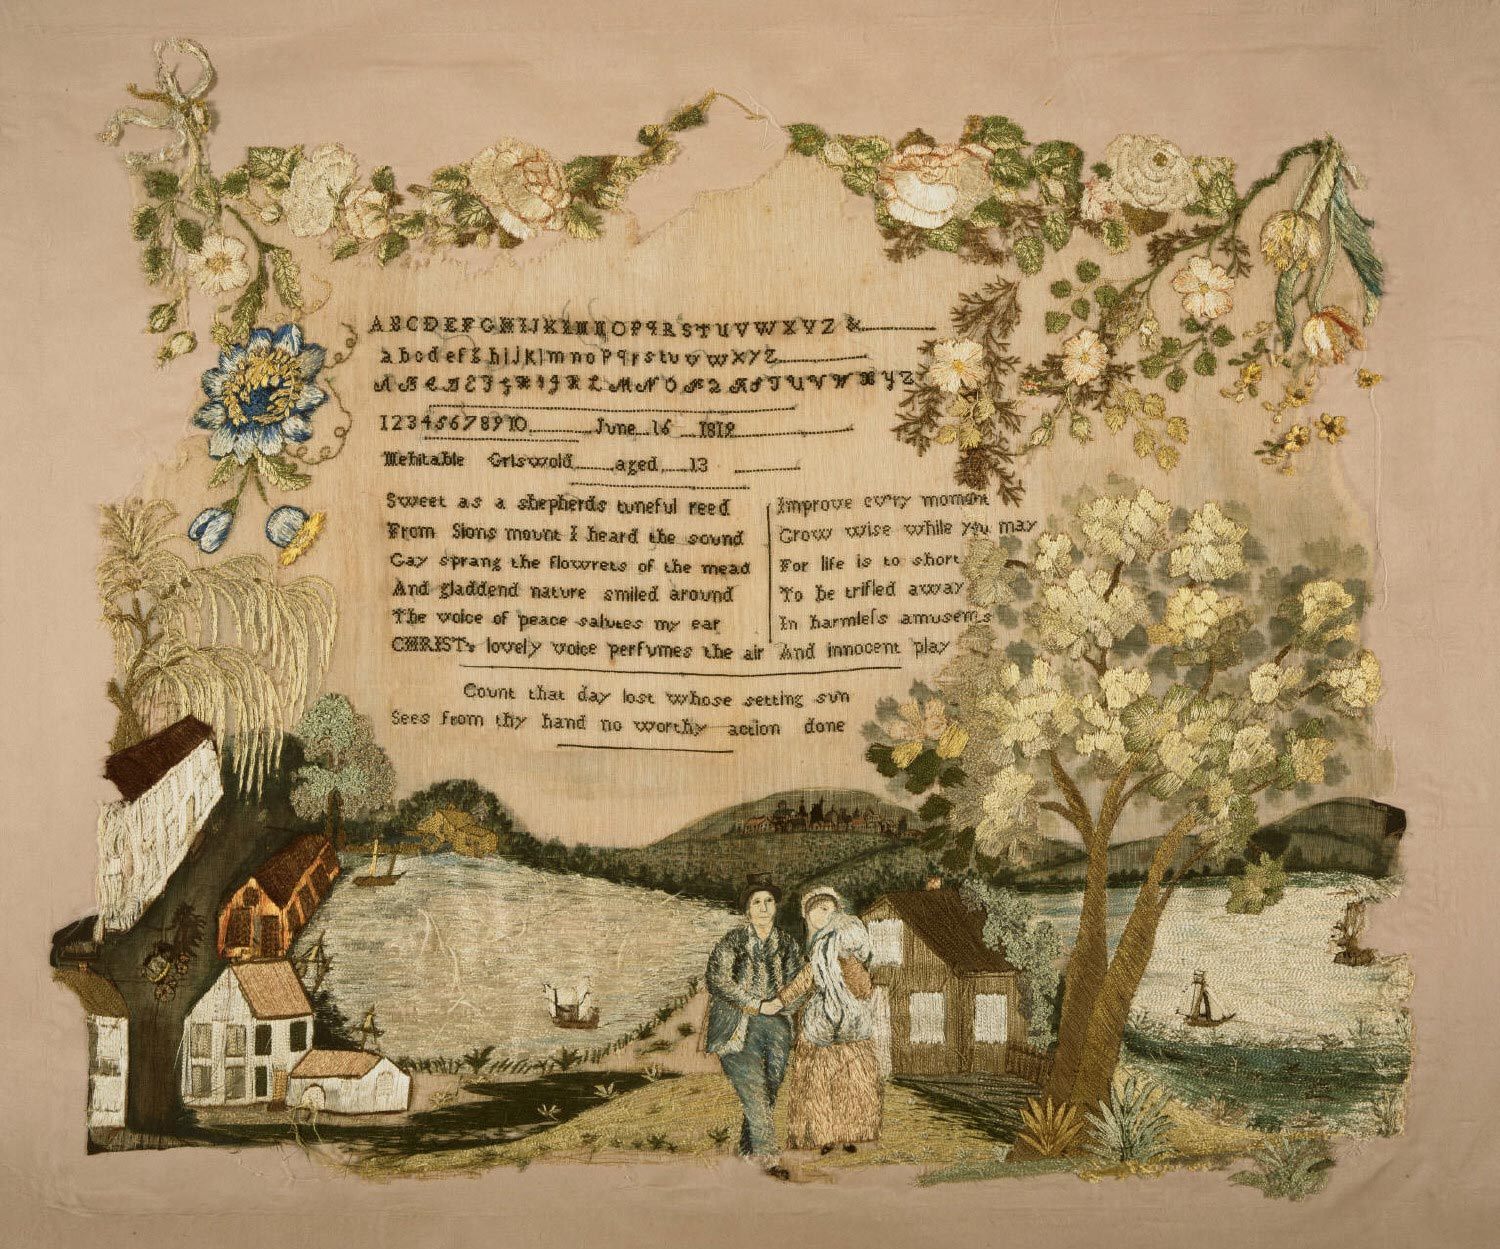 ABCDEFGHIJKLMNOPQRSTUVWXYZ &
abcdefghijklmnopqrstuvwxyz
ABCDEFGHIJKLMNOPQRSTUVWXYZ
12345678910 June 16 1819
Mehitable Griswold aged 13
Sweet as a shepherds tuneful reed
From Sions mount I heard the sound
Gay sprang the flowrets of the mead
And gladdend nature smiled around
The voice of peace salutes my ear
CHRISTs lovely voice perfumes the air
Improve evry moment
Grow wise while you may
For life is to short
To be trifled away
In harmleſs amusemts
And innocent play
Count that day lost whose setting sun
Sees from thy hand no worthy action done